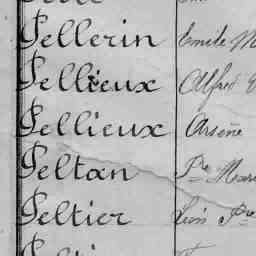 Pellerin Emile M
Pellieux Alfred
Pellieux Arsène
Peltan Pre Marie
Peltier Léon Pre